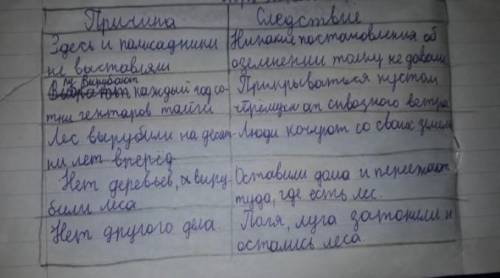 Причина
Следствие
Здесь и полисадники
не выставляли
Никакие постановления об
озеленении толку не давали
Вырубают каждый год со-
тни гектаров тайги
Прикрываться кустом
от сквозного ветра
Лес вырубили на десят-
ки лет вперёд
Люди кочуют со своих земель
Нет деревьев, выру-
били леса
Оставили дома и переезжают
туда, где есть лес.
Нет другого дела.
Поля, луга затопили и
остались леса.